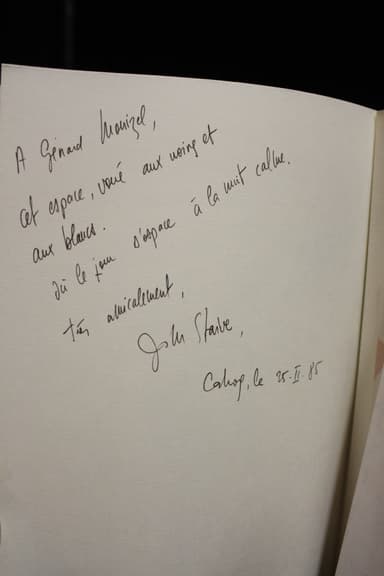 A Gérard Mourizel,
cet espace, voué aux noirs et
aux blancs.
où le jour s'espace à la nuit calme.
très amicalement,
John Starke,
le 25-II-85